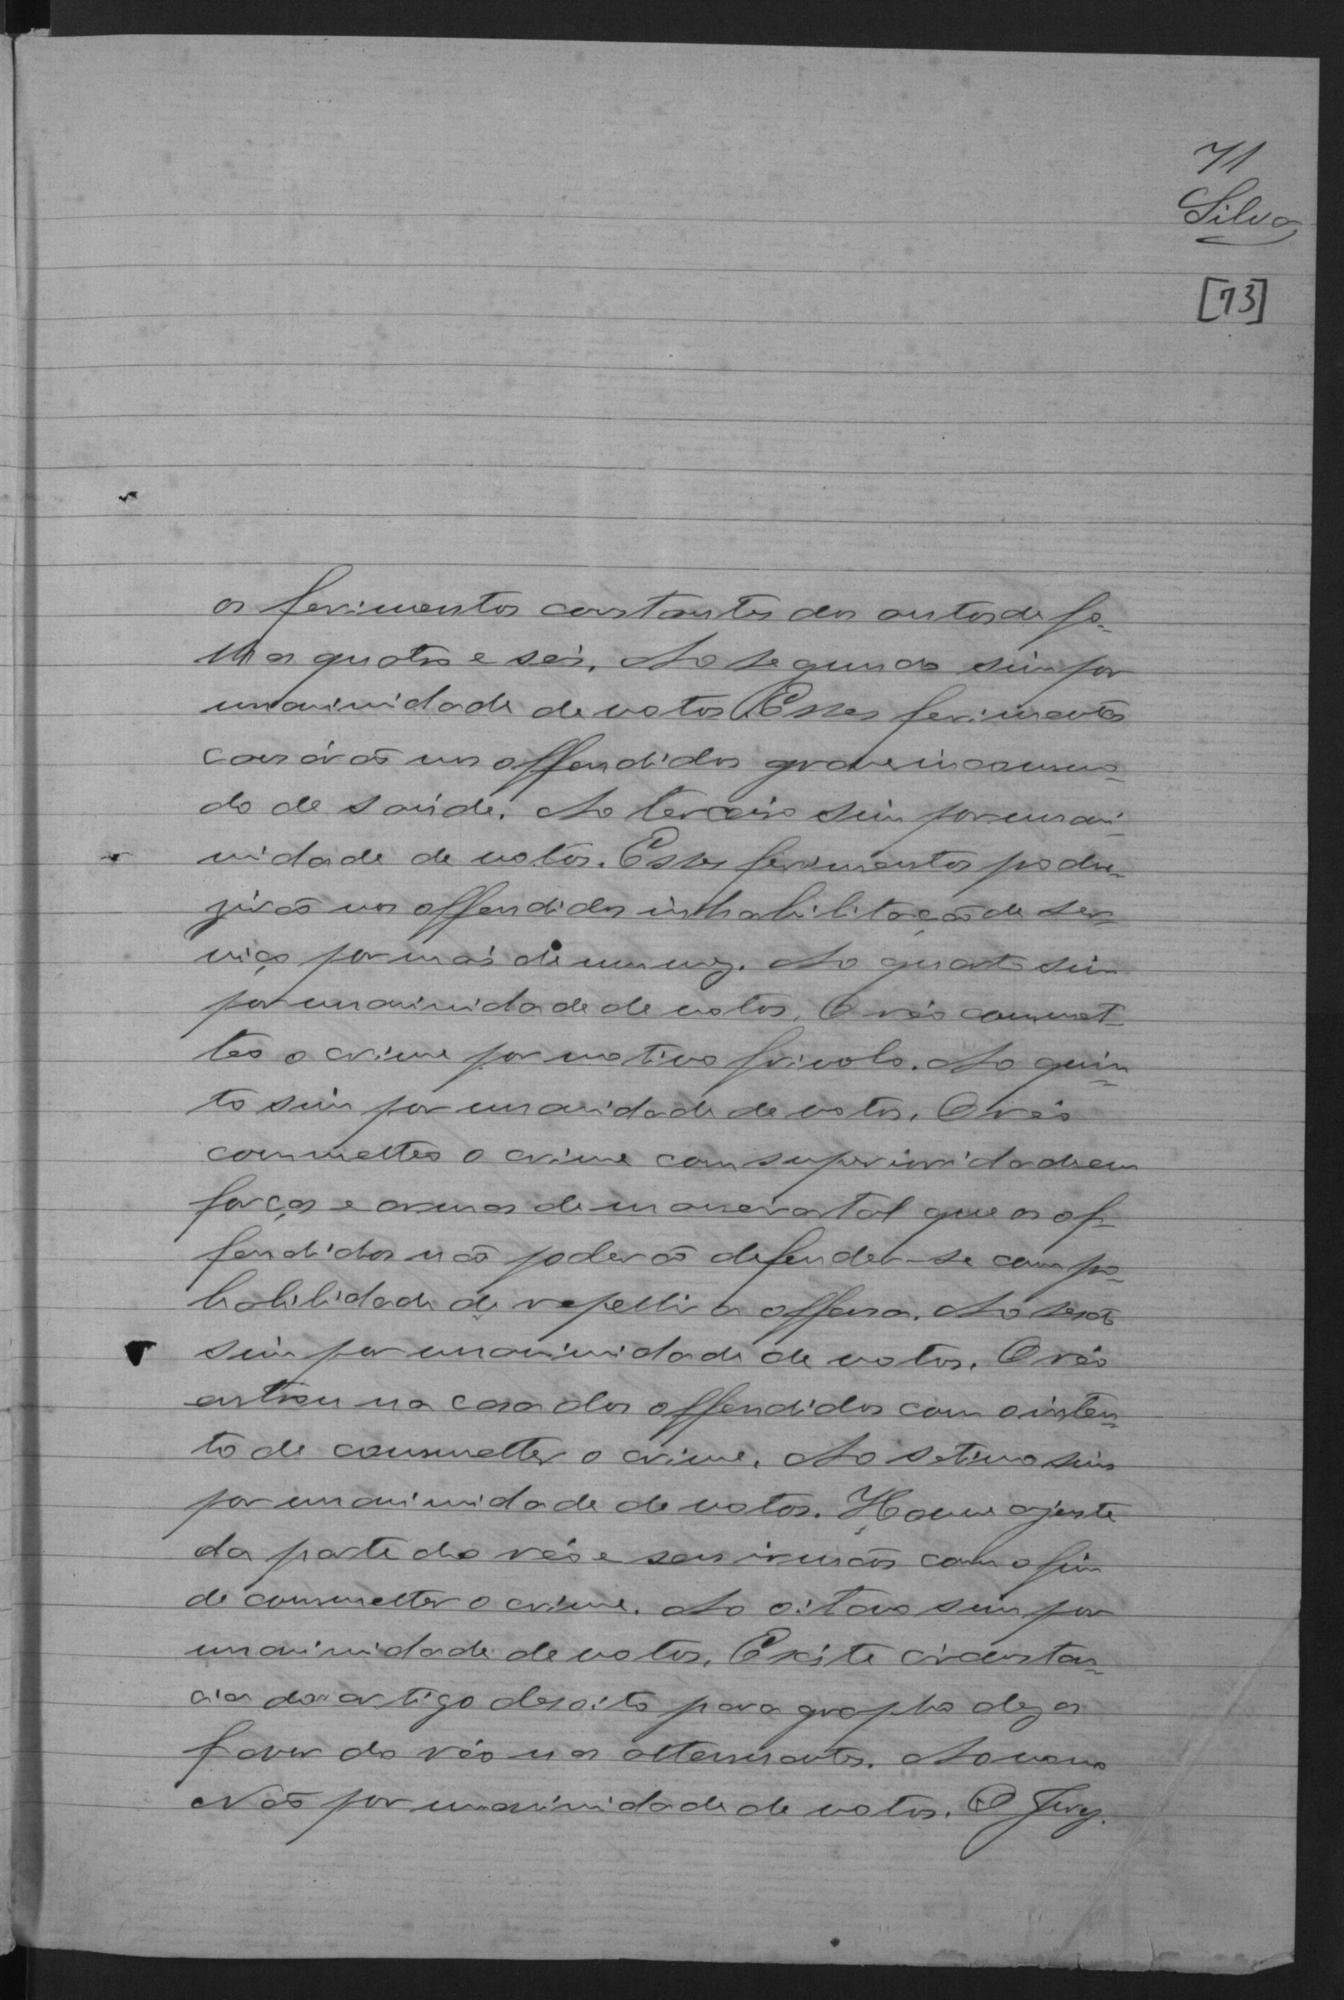 71
Silva
[73]
os ferimentos constantes dos autos de fo-
lhas quatro e seis. Ao segundo sim por
unanimidade de votos. Esses ferimentos
causárão nos offendidos grave incommo-
do de saúde. Ao terceiro sim por unani-
midade de votos. Esses ferimentos produ-
zirão nos offendidos inhabilitação de ser-
viço por mais de um mez. Ao quarto sim
por unanimidade de votos. O réo commet-
teo o crime por motivo frivolo. Ao quin-
to sim por unanidade de votos. O réo
commetteo o crime com superioridade em
forças e armas de maneira tal que os of-
fendidos não poderão defender-se com pro-
babilidade de repellir a offensa. Ao sexto
sim por unanimidade de votos. O réo
entrou na casa dos offendidos com o inten-
to de commetter o crime. Ao setimo sim
por unanimidade de votos. Houve ajuste
da parte do réo e seus irmãos com o fim
de commetter o crime. Ao oitavo sim por
unanimidade de votos. Existe circonstan-
cias do artigo desoito paragrapho dez a
favor do réo nas attenuantes. Ao nono
Não por unanimidade de votos. O Jury.